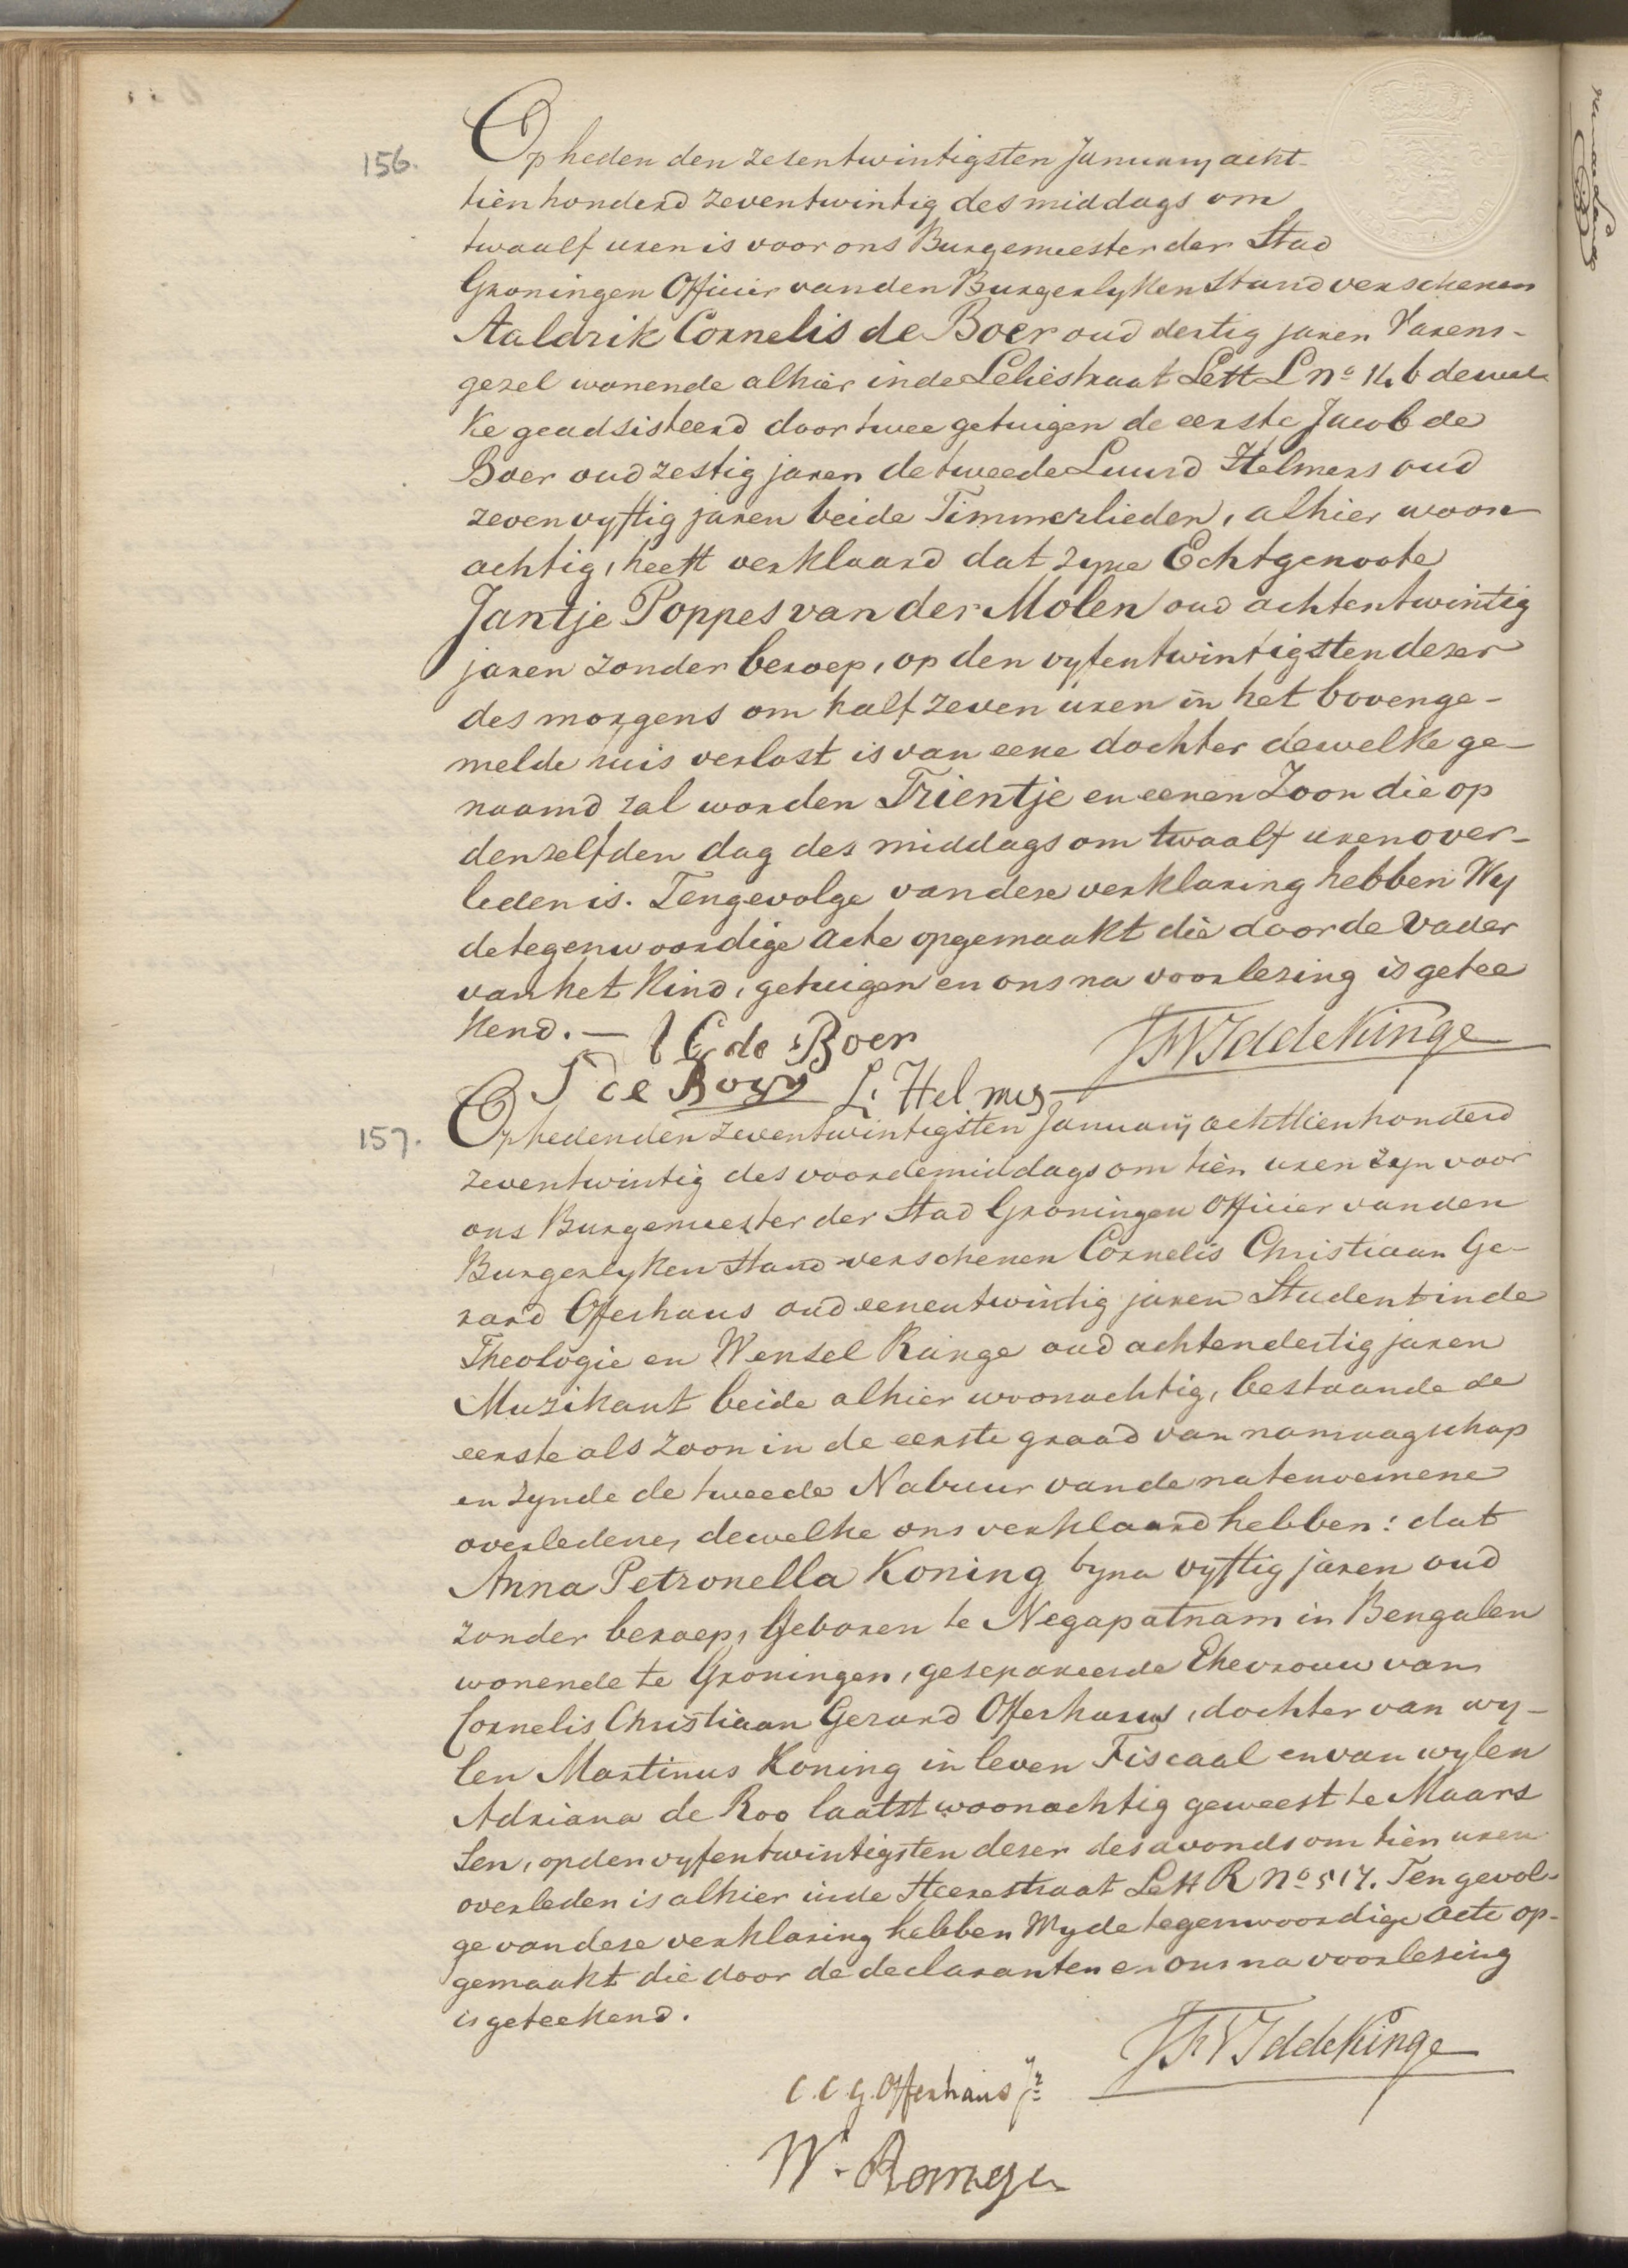 156.
Op heden den zesentwintigsten January acht-
tien honderd zeventwintig des middags om
twaalf uren is voor ons Burgemeester der Stad
Groningen Officier van den Burgerlyken Stand verschenen
Aaldrik Cornelis de Boer oud dertig jaren Varens-
gezel wonende alhier in de Leliestraat Lett L no dewel
ke geadsisteerd door twee getuigen de eerste Jacob de
Boer oud zestig jaren de tweede Luurd Helmers oud
zevenvyftig jaren beide Timmerlieden, alhier woon
achtig, heeft verklaard dat zyne Echtgenoote
Jantje Poppes van der Molen oud achtentwintig
jaren zonder beroep, op den vyfentwintigsten dezer
des morgens om half zeven uren in het bovenge-
melde huis verlost is van eene dochter dewelke ge-
naamd zal worden Trientje en eenen Zoon die op
denzelfden dag des middags om twaalf uren over-
leden is. Tengevolge van deze verklaring hebben Wy
de tegenwoordige acte opgemaakt die door de Vader
van het Kind, getuigen en ons na voorlezing is getee
kend. —
C de Boer
JHVIddekinge
J de Boer L. Helmes
157.
Op heden den zeventwintigsten January achttienhonderd
zeventwintig des voordemiddags om tien uren zyn voor
ons Burgemeester der Stad Groningen Officier van den
Burgerlyken Stand verschenen Cornelis Christiaan Ge-
rard Offerhaus oud eenentwintig jaren Student in de
Theologie en Wensel Runge oud achtendertig jaren
Muzikant beide alhier woonachtig, bestaande de
eerste als zoon in de eerste graad van namaagschap
en zynde de tweede Nabuur van de natenoemene
overledene, dewelke ons verklaard hebben: dat
Anna Petronella Koning byna vyftig jaren oud
zonder beroep, Geboren te Negapatnam in Bengalen
wonende te Groningen, gesepareerde Ehevrouw van
Cornelis Christiaan Gerard Offerhaus, dochter van wy-
len Martinus Koning in leven Fiscaal en van wylen
Adriana de Roo laatst woonachtig geweest te Maars
sen, op den vyfentwintigsten dezer des avonds om tien uren
overleden is alhier in de Heerestraat Lett R No 517. Ten gevol-
ge van deze verklaring hebben Wy de tegenwoordige acte op-
gemaakt die door de declaranten en ons na voorlesing
is geteekend.
JHVIddekinge
C. C. G. Offerhaus Jr
W. Romge